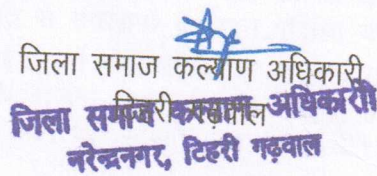 जिला समाज कल्याण अधिकारी
टिहरी गढ़वाल
जिला समाज कल्याण अधिकारी
नरेन्द्रनगर, टिहरी गढ़वाल